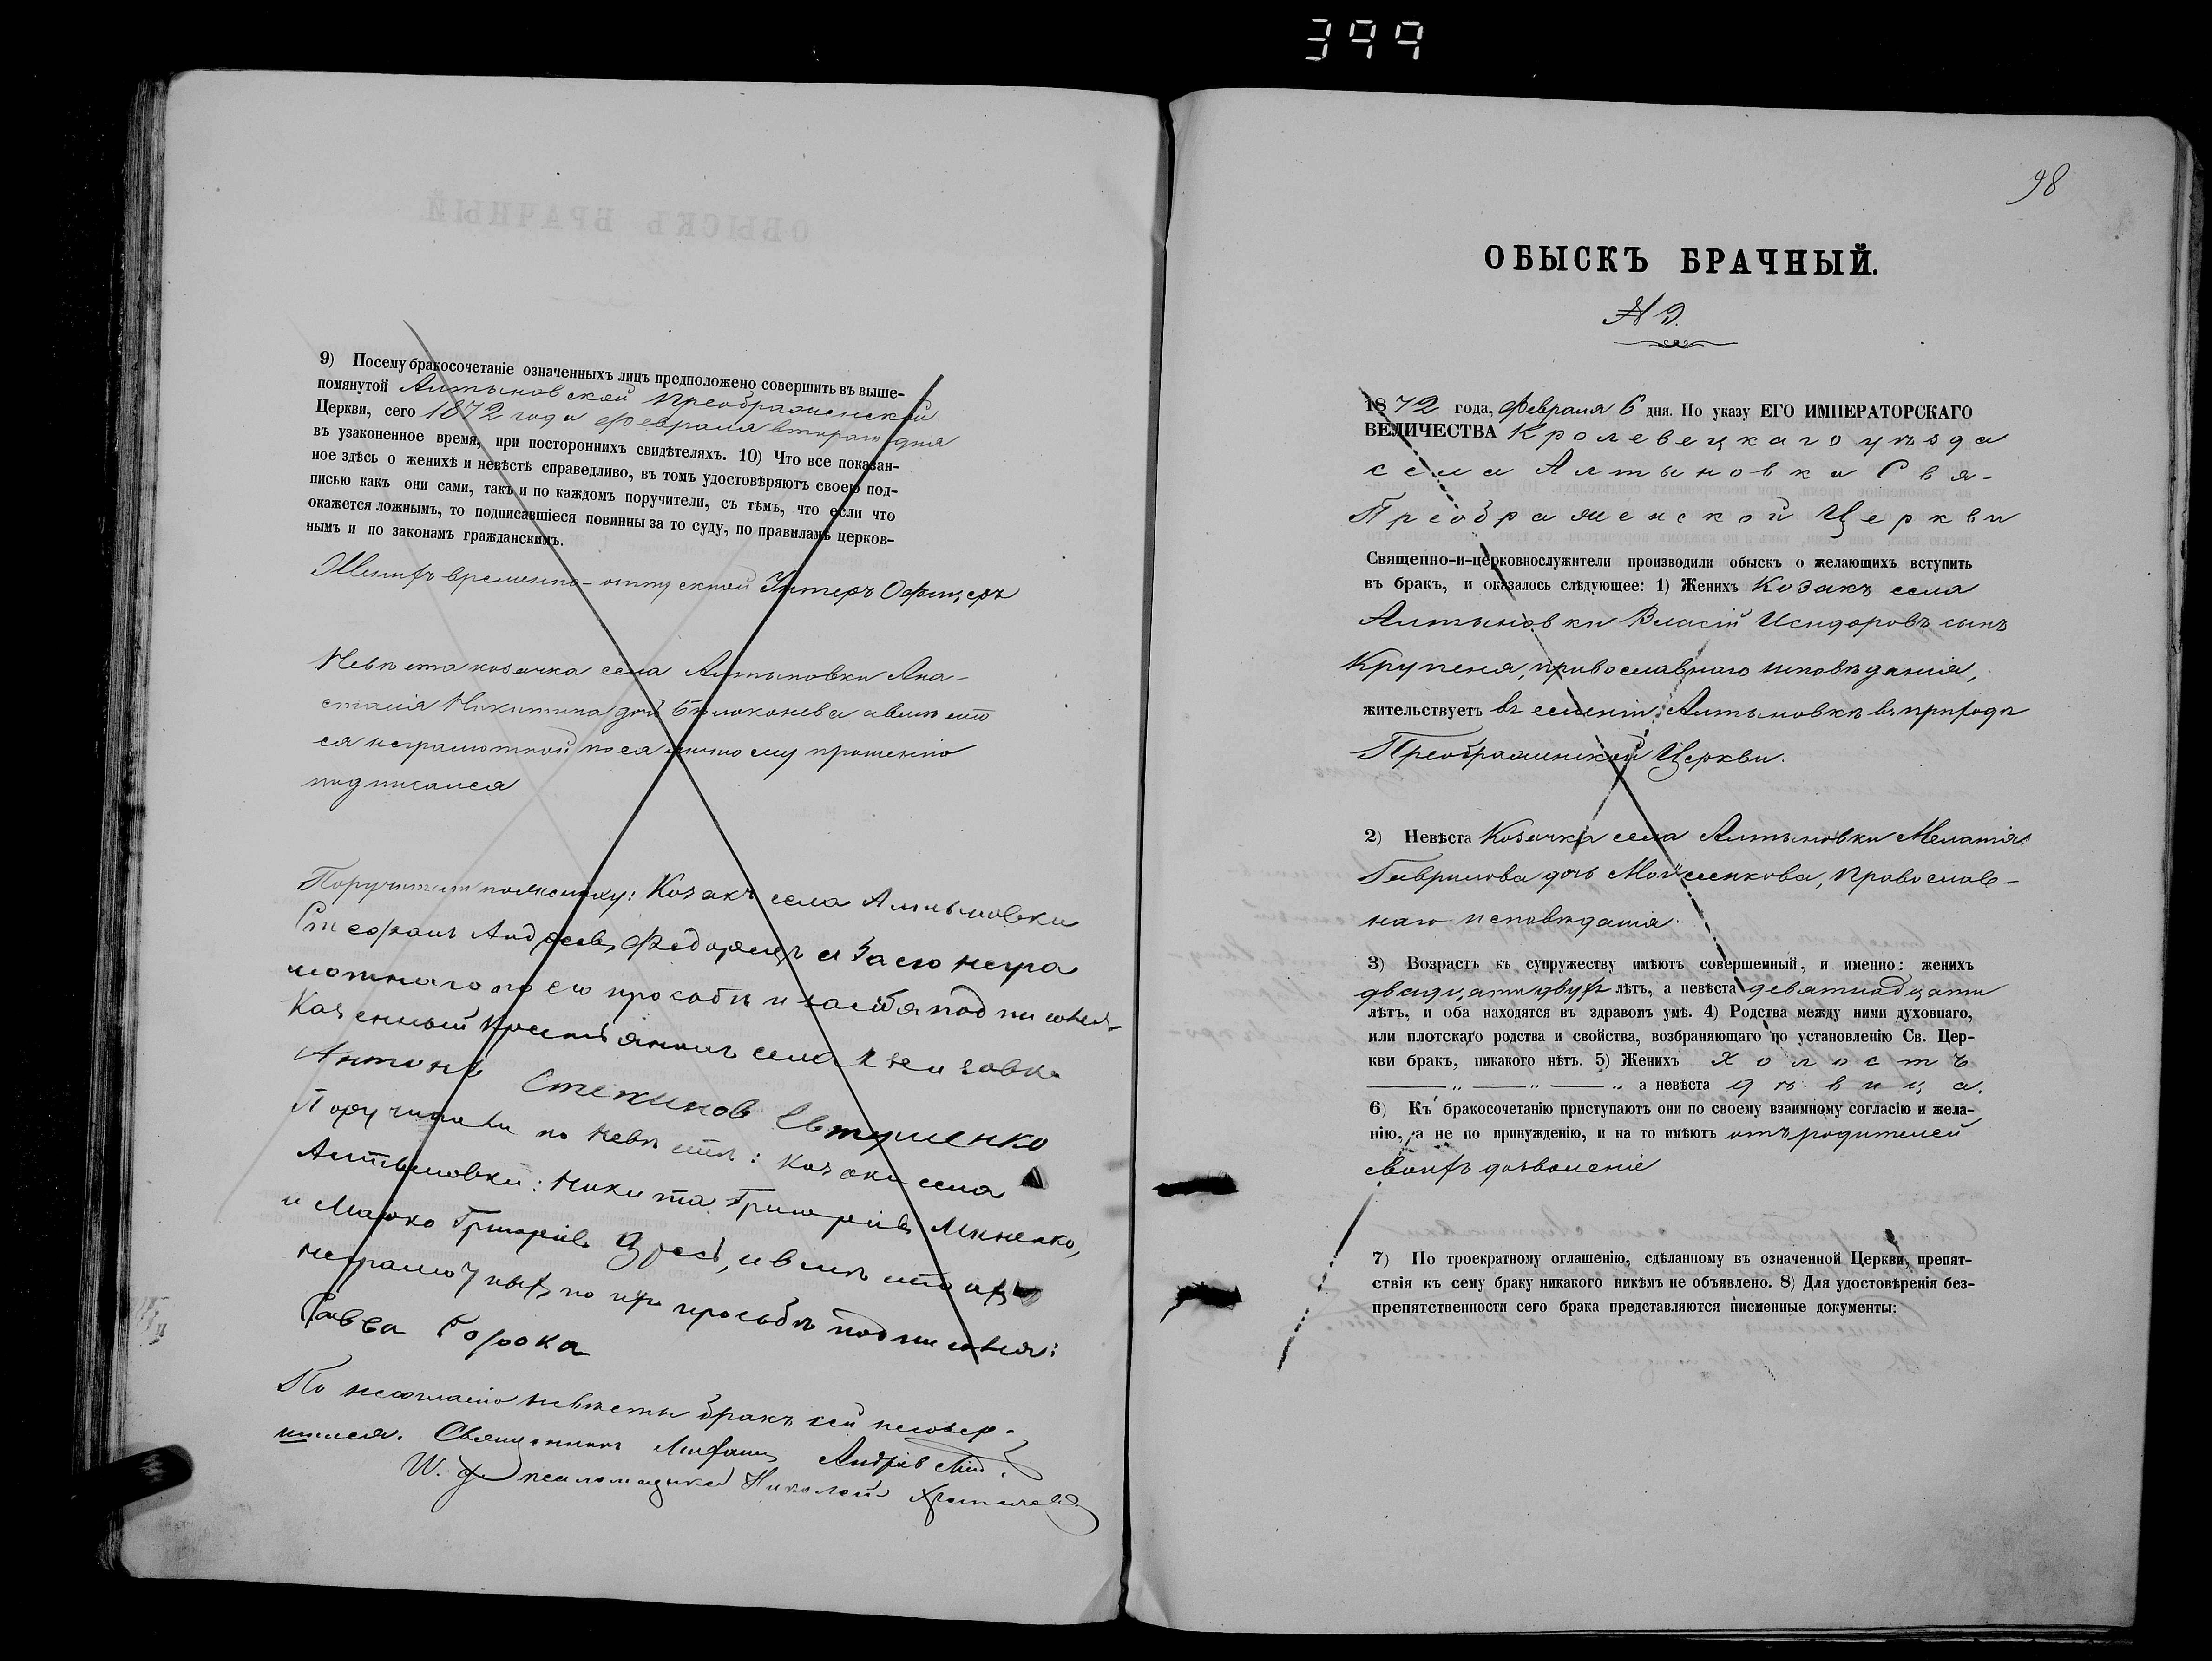 399
9) Посему бракосочетаніе означенныхъ лицъ предположено совершить въ выше-
помянутой Алтыновской Преображенской
Церкви, сего 1872 года февраля втораго дня
въ узаконенное время, при постороннихъ свидѣтеляхъ. 10) Что все показан-
ное здѣсь о женихѣ и невѣстѣ справедливо, въ томъ удостовѣряютъ своею под-
писью какъ они сами, такъ и по каждомъ поручители, съ тѣмъ, что если что
окажется ложнымъ, то подписавшіеся повинны за то суду, по правиламъ церков-
нымъ и по законамъ гражданскимъ.
Женихъ временно-отпускной Унтеръ Офицеръ
Невѣста козачка села Алтыновки Ана-
стасія Никитина дочь Бѣлоконева а вмѣсто
ея неграмотной по ея личному прошенію
подписался
Поручители по женику: Козакъ села Алтыновки
Стефанъ Андреевъ и за его негра
мотнаго по его прозбѣ и за себя подписался
Казенный крестьянинъ села
Антонъ Евтушенко
Поручители по невѣсте: козаки села
Алтыновки: Никита Григоріевъ
и Марко Григоріевъ а вмѣсто ихъ
неграмотныхъ по ихъ прозбѣ подписался:
Савва Горока
По несогласію невѣсты бракъ сей несовер-
шился. Священникъ Андріевскій.
И. д. псаломщика Николай
98
ОБЫСКЪ БРАЧНЫЙ.
№ 9.
1872 года, Февраля 6 дня. По указу ЕГО ИМПЕРАТОРСКАГО
ВЕЛИЧЕСТВА Кролевецкаго уѣзда
села Алтыновки Свя-
Преображенской Церкви
Священно-и-церковнослужители производили обыскъ о желающихъ вступить
въ бракъ, и оказалось слѣдующее: 1) Женихъ Козакъ села
Алтыновки Власій Исидоровъ сынъ
Крупеня, православнаго исповѣданія,
жительствуетъ въ селеніи Алтыновкѣ въ приходѣ
Преображенской Церкви.
2) Невѣста Козачка села Алтыновки Мелатія
Гаврилова дочь Мойсенкова, православ-
наго исповѣданія.
3) Возрастъ къ супружеству имѣютъ совершенный, и именно: женихъ
двадцати двухъ лѣтъ, а невѣста девятнадцати
лѣтъ, и оба находятся въ здравомъ умѣ. 4) Родства между ними духовнаго,
или плотскаго родства и свойства, возбраняющаго по установленію Св. Цер-
кви бракъ, никакого нѣтъ. 5) Женихъ холостъ
— „ — „ — „ а невѣста дѣвица.
6) Къ бракосочетанію приступаютъ они по своему взаимному согласію и жела-
нію, а не по принужденію, и на то имѣютъ отъ родителей
своихъ дозволеніе
7) По троекратному оглашенію, сдѣланному въ означенной Церкви, препят-
ствія къ сему браку никакого никѣмъ не объявлено. 8) Для удостовѣренія без-
препятственности сего брака представляются письменные документы: